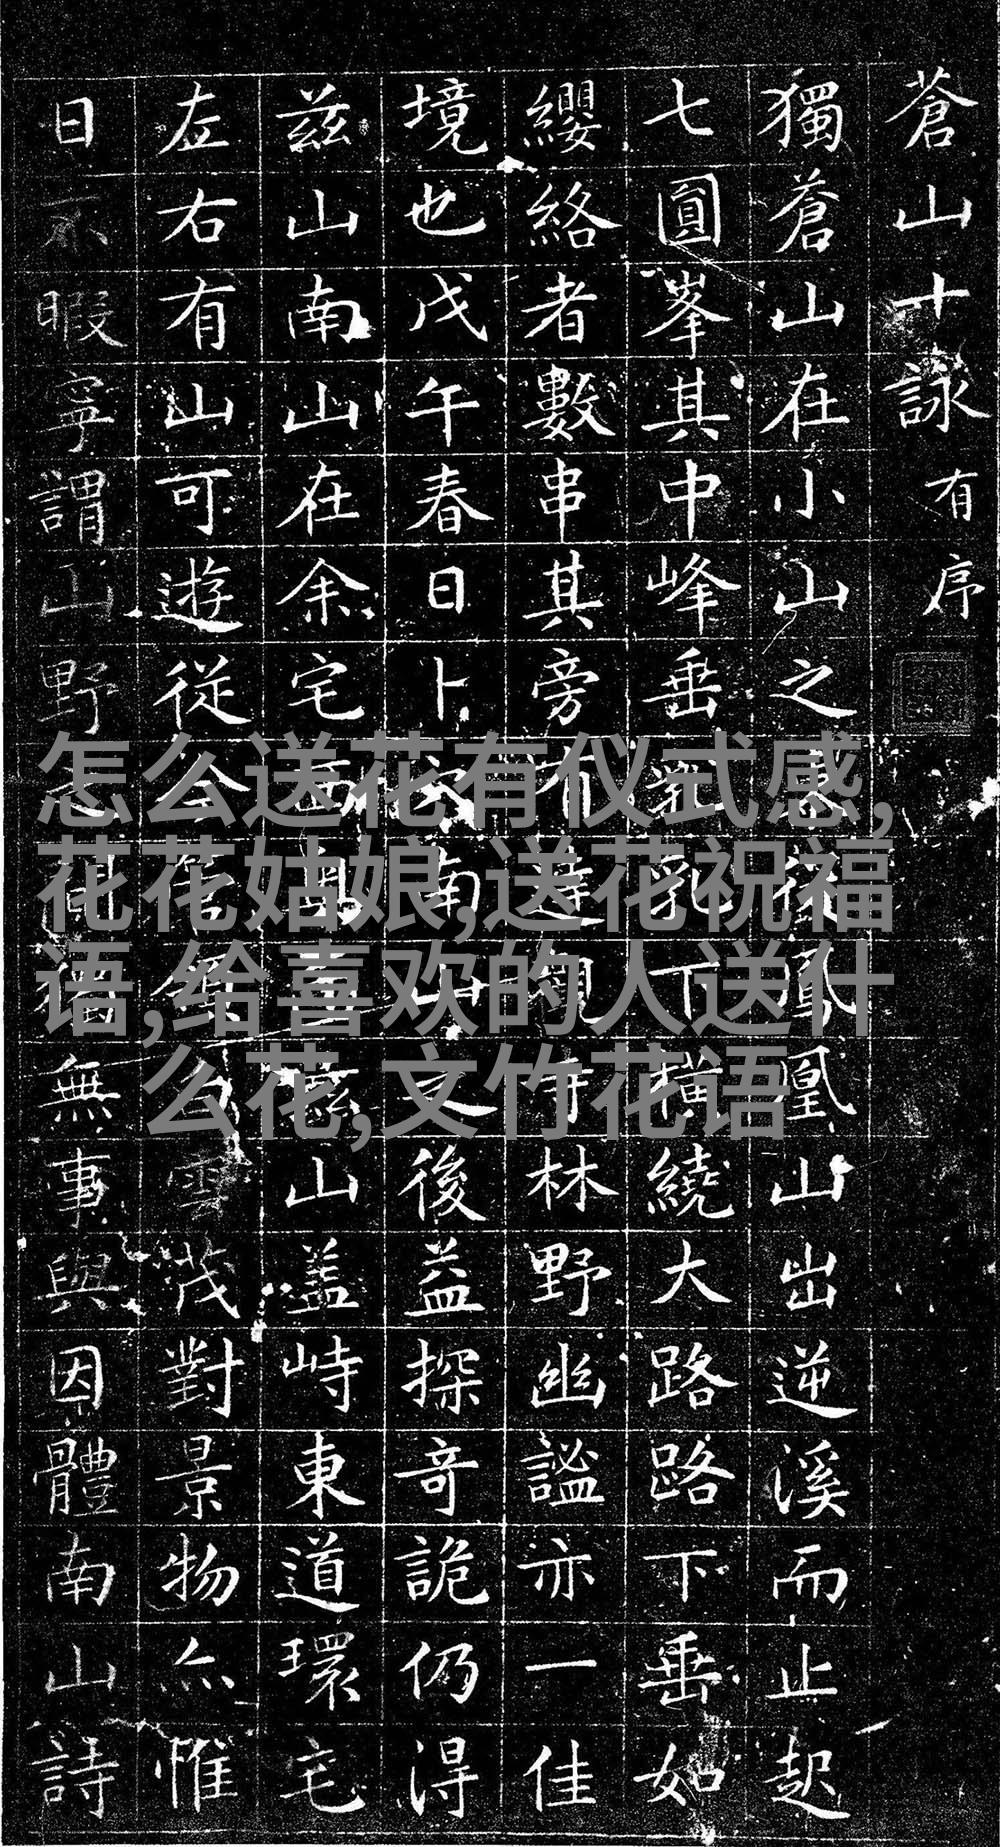 蒼山十詠 有序
獨蒼山在小山之從鳳凰山出逆溪而止起
七圓峯其中峰垂乳下橫繞大路路下垂如
纓絡者數串其旁有寺林野幽謐亦一佳
境也戊午春日卜南山之後益探奇詭仍得
茲山南山在余宅西茲山盖峙東道環宅
左右有山可遊從今雲茂對景物亦惟
日不暇寧謂山野獨無事與因體南山詩
怎么送花有仪式感,
花花姑娘,送花祝福
语,给喜欢的人送什
么花,文竹花语